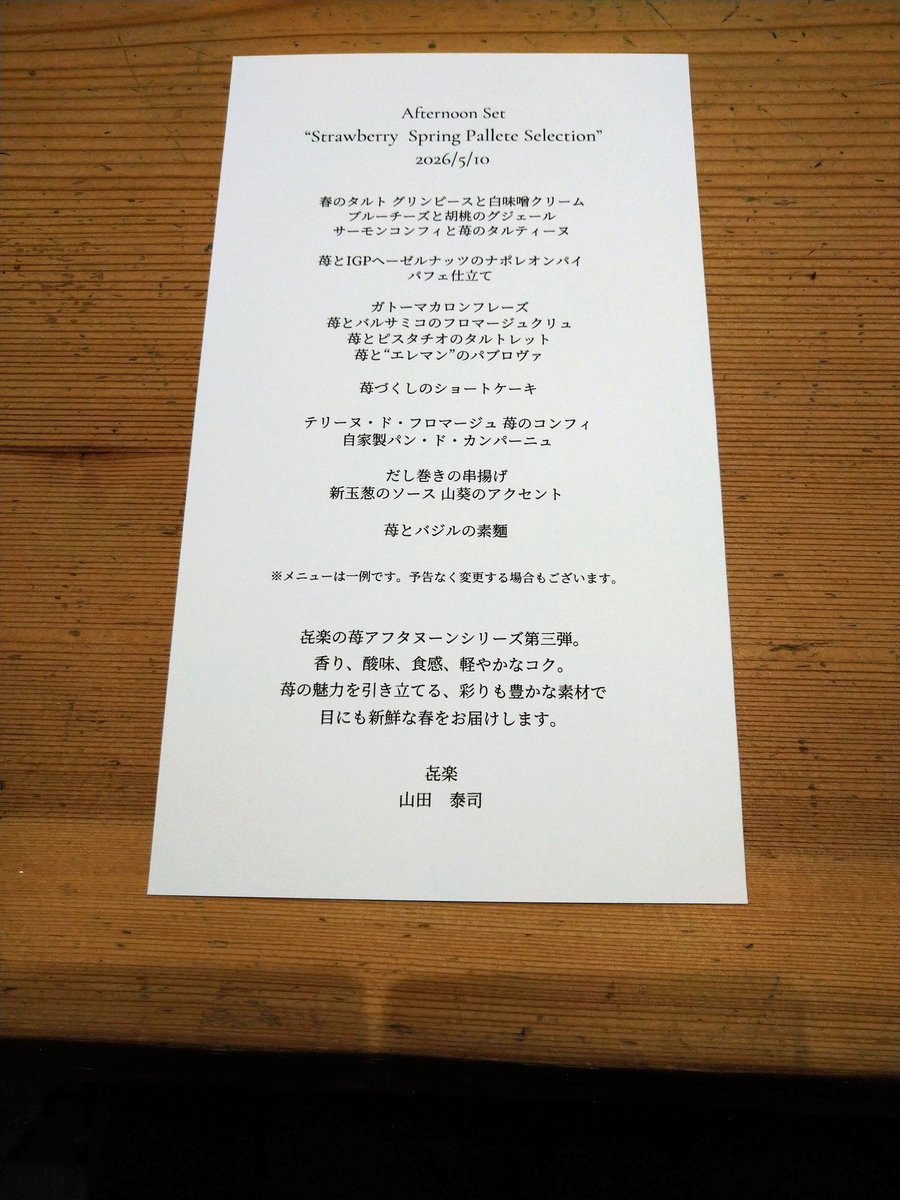 Afternoon Set
“Strawberry Spring Pallete Selection”
2026/5/10
春のタルト グリンピースと白味噌クリーム
ブルーチーズと胡桃のグジェール
サーモンコンフィと苺のタルティーヌ
苺とIGPヘーゼルナッツのナポレオンパイ
パフェ仕立て
ガトーマカロンフレーズ
苺とバルサミコのフロマージュクリュ
苺とピスタチオのタルトレット
苺と“エレマン”のパブロヴァ
苺づくしのショートケーキ
テリーヌ・ド・フロマージュ 苺のコンフィ
自家製パン・ド・カンパーニュ
だし巻きの串揚げ
新玉葱のソース 山葵のアクセント
苺とバジルの素麵
※メニューは一例です。予告なく変更する場合もございます。
㐂楽の苺アフタヌーンシリーズ第三弾。
香り、酸味、食感、軽やかなコク。
苺の魅力を引き立てる、彩りも豊かな素材で
目にも新鮮な春をお届けします。
㐂楽
山田　泰司